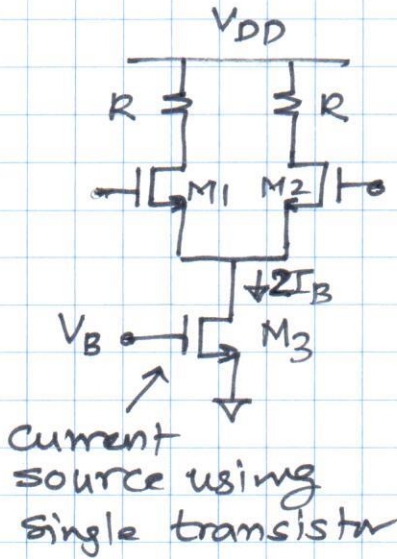 VDD
R R
M1 M2
2IB
VB M3
current
source using
single transistor